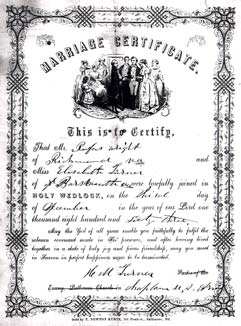 MARRIAGE CERTIFICATE.
This is to Certify,
That Mr. Rufus Wright
of Richmond Va and
Miss Elisabeth Turner
of were lawfully joined in
HOLY WEDLOCK, on the third day
of December in the year of our Lord one
thousand eight hundred and sixty three
May the God of all grace enable you faithfully to fulfil the
solemn covenant made in His presence, and after having lived
together in a state of holy joy and divine friendship, may you meet
in Heaven in perfect happiness never to be terminated.
H M Turner Pastor of the
Chaplain U.S.